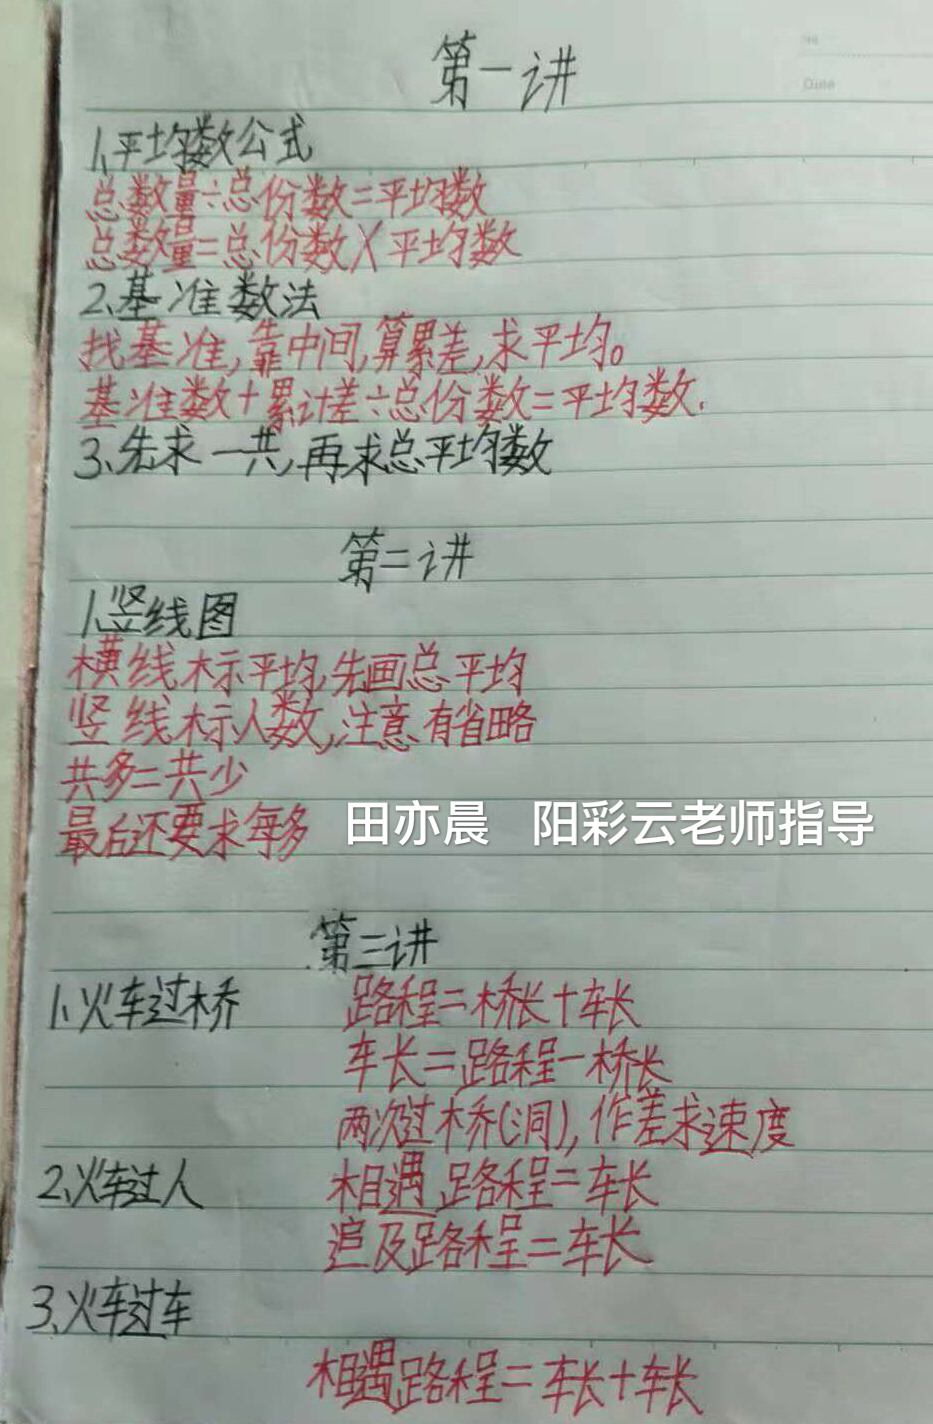 No
Date
第一讲
1、平均数公式
总数量÷总份数=平均数
总数量=总份数×平均数
2、基准数法
找基准,靠中间,算累差,求平均。
基准数+累计差÷总份数=平均数.
3、先求一共,再求总平均数
第二讲
1、竖线图
横线标平均,先画总平均
竖线标人数,注意有省略
共多=共少
最后还要求每多
田亦晨 阳彩云老师指导
第三讲
1、火车过桥 路程=桥长+车长
车长=路程-桥长
两次过桥(洞),作差求速度
2、火车过人 相遇路程=车长
追及路程=车长
3、火车过车
相遇路程=车长+车长